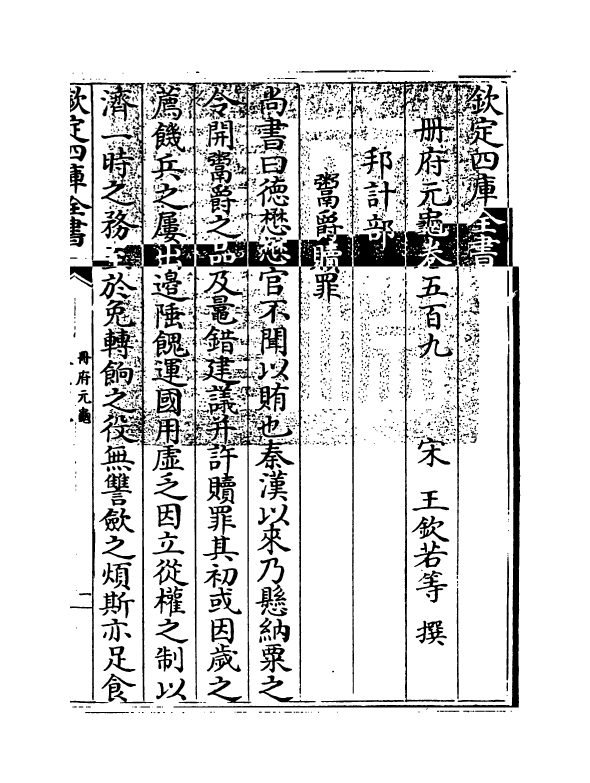 欽定四庫全書
冊府元龜卷五百九
宋 王欽若等 撰
邦計部
鬻爵贖罪
尚書曰德懋懋官不聞以賄也秦漢以來乃懸納粟之
令開鬻爵之品及鼂錯建議并許贖罪其初或因歲之
薦饑兵之屢出邊陲餽運國用虛乏因立從權之制以
濟一時之務至於免轉餉之役無讐歛之煩斯亦足食
欽定四庫全書
冊府元龜